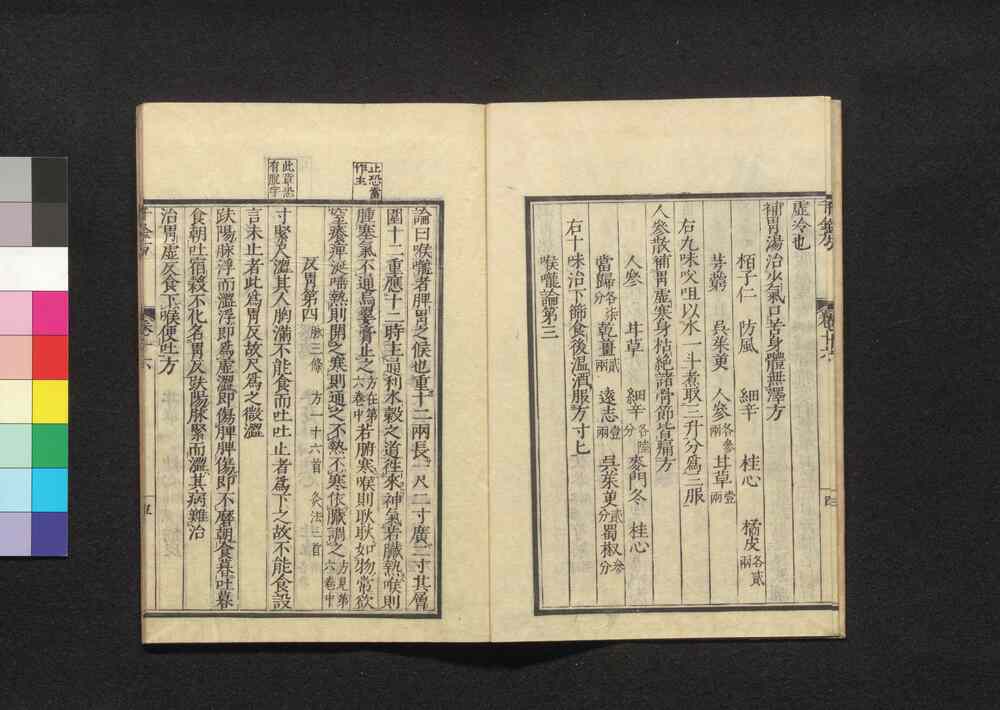 虛冷也
補胃湯治少氣口苦身體無澤方
栢子仁 防風 細辛 桂心 橘皮各貳兩
芎藭 吳茱萸 人參各參兩 甘草壹兩
右九味㕮咀以水一斗煮取三升分爲三服
人參散補胃虛寒身枯絕諸骨節皆痛方
人參 甘草 細辛各陸分 麥門冬 桂心
當歸各柒分 乾薑貳兩 遠志壹兩 吳茱萸貳分 蜀椒參分
右十味治下篩食後溫酒服方寸匕
喉嚨論第三
論曰喉嚨者脾胃之候也重十二兩長一尺二寸廣二寸其層
圍十二重應十二時主通利水穀之道往來神氣若臟熱喉則
腫塞氣不通烏翣膏主之方在第六卷中若腑寒喉則耿耿如物常欲
窒癢痺涎唾熱則開之寒則通之不熱不寒依臟調之方見第六卷中
反胃第四 脉三條 方一十六首 灸法三首
寸緊尺澀其人胸滿不能食而吐吐止者爲下之故不能食設
言未止者此爲胃反故尺爲之微澀
趺陽脉浮而澀浮即爲虛澀即傷脾脾傷即不磨朝食暮吐暮
食朝吐宿穀不化名胃反趺陽脉緊而澀其病難治
治胃虛反食下喉便吐方
止恐當作主
此章恐有脫字